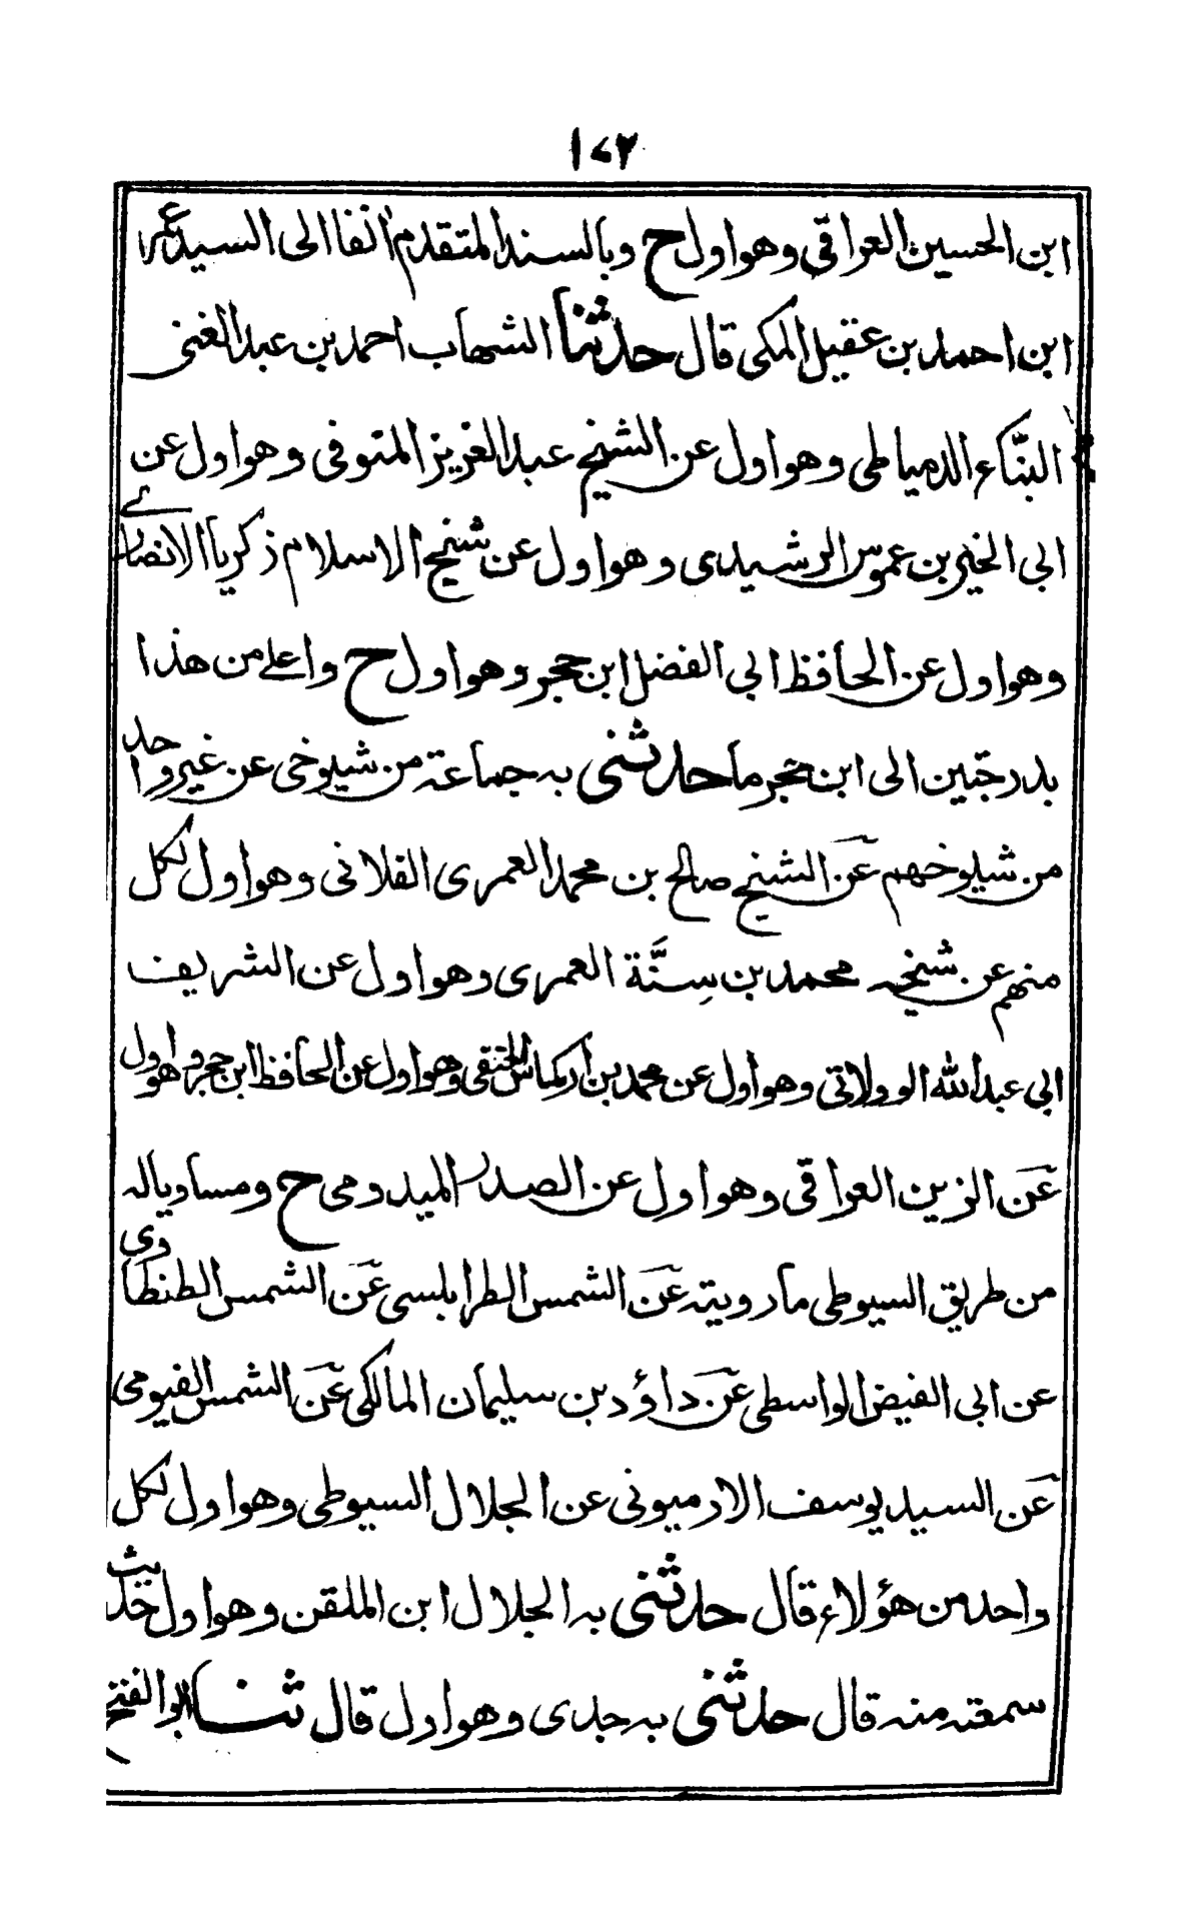 ١٧٢
ابن الحسين العراقي وهو اول ح وبالسند المتقدم انفا الى السيد عمر
ابن احمد بن عقيل المكى قال حدثنا الشهاب احمد بن عبد الغنى
البنّاء الدمياطى وهو اول عن الشيخ عبد العزيز المتوفى وهو اول عن
ابى الخير بن عموس الرشيدى وهو اول عن شيخ الاسلام زكريا الانصارے
وهو اول عن الحافظ ابى الفضل ابن حجر وهو اول ح واعلے من هذا
بدرجتين الى ابن حجر ما حدثنى به جماعة من شيوخى عن غير واحد
من شيوخهم عَن الشيخ صالح بن محمد العمرى الفلانى وهو اول لكل
منهم عن شيخه محمد بن سِنَّة العمرى وهو اول عن الشريف
ابى عبد الله الوولاتى وهو اول عن محمد بن اركماس الحنفى وهو اول عن الحافظ ابن حجر وهو اول
عَن الزين العراقى وهو اول عن الصدر الميدومى ح ومساويا له
من طريق السيوطى ما رويته عَن الشمس الطرابلسى عَن الشمس الطنطاوى
عن ابى الفيض الواسطى عَن داؤد بن سليمان المالكى عَن الشمس الفيومى
عَن السيد يوسف الارميونى عن الجلال السيوطى وهو اول لكل
واحد من هؤلاء قال حدثنى به الجلال ابن الملقن وهو اول حديث
سمعته منه قال حدثنى به جدى وهو اول قال ثنا ابو الفتح